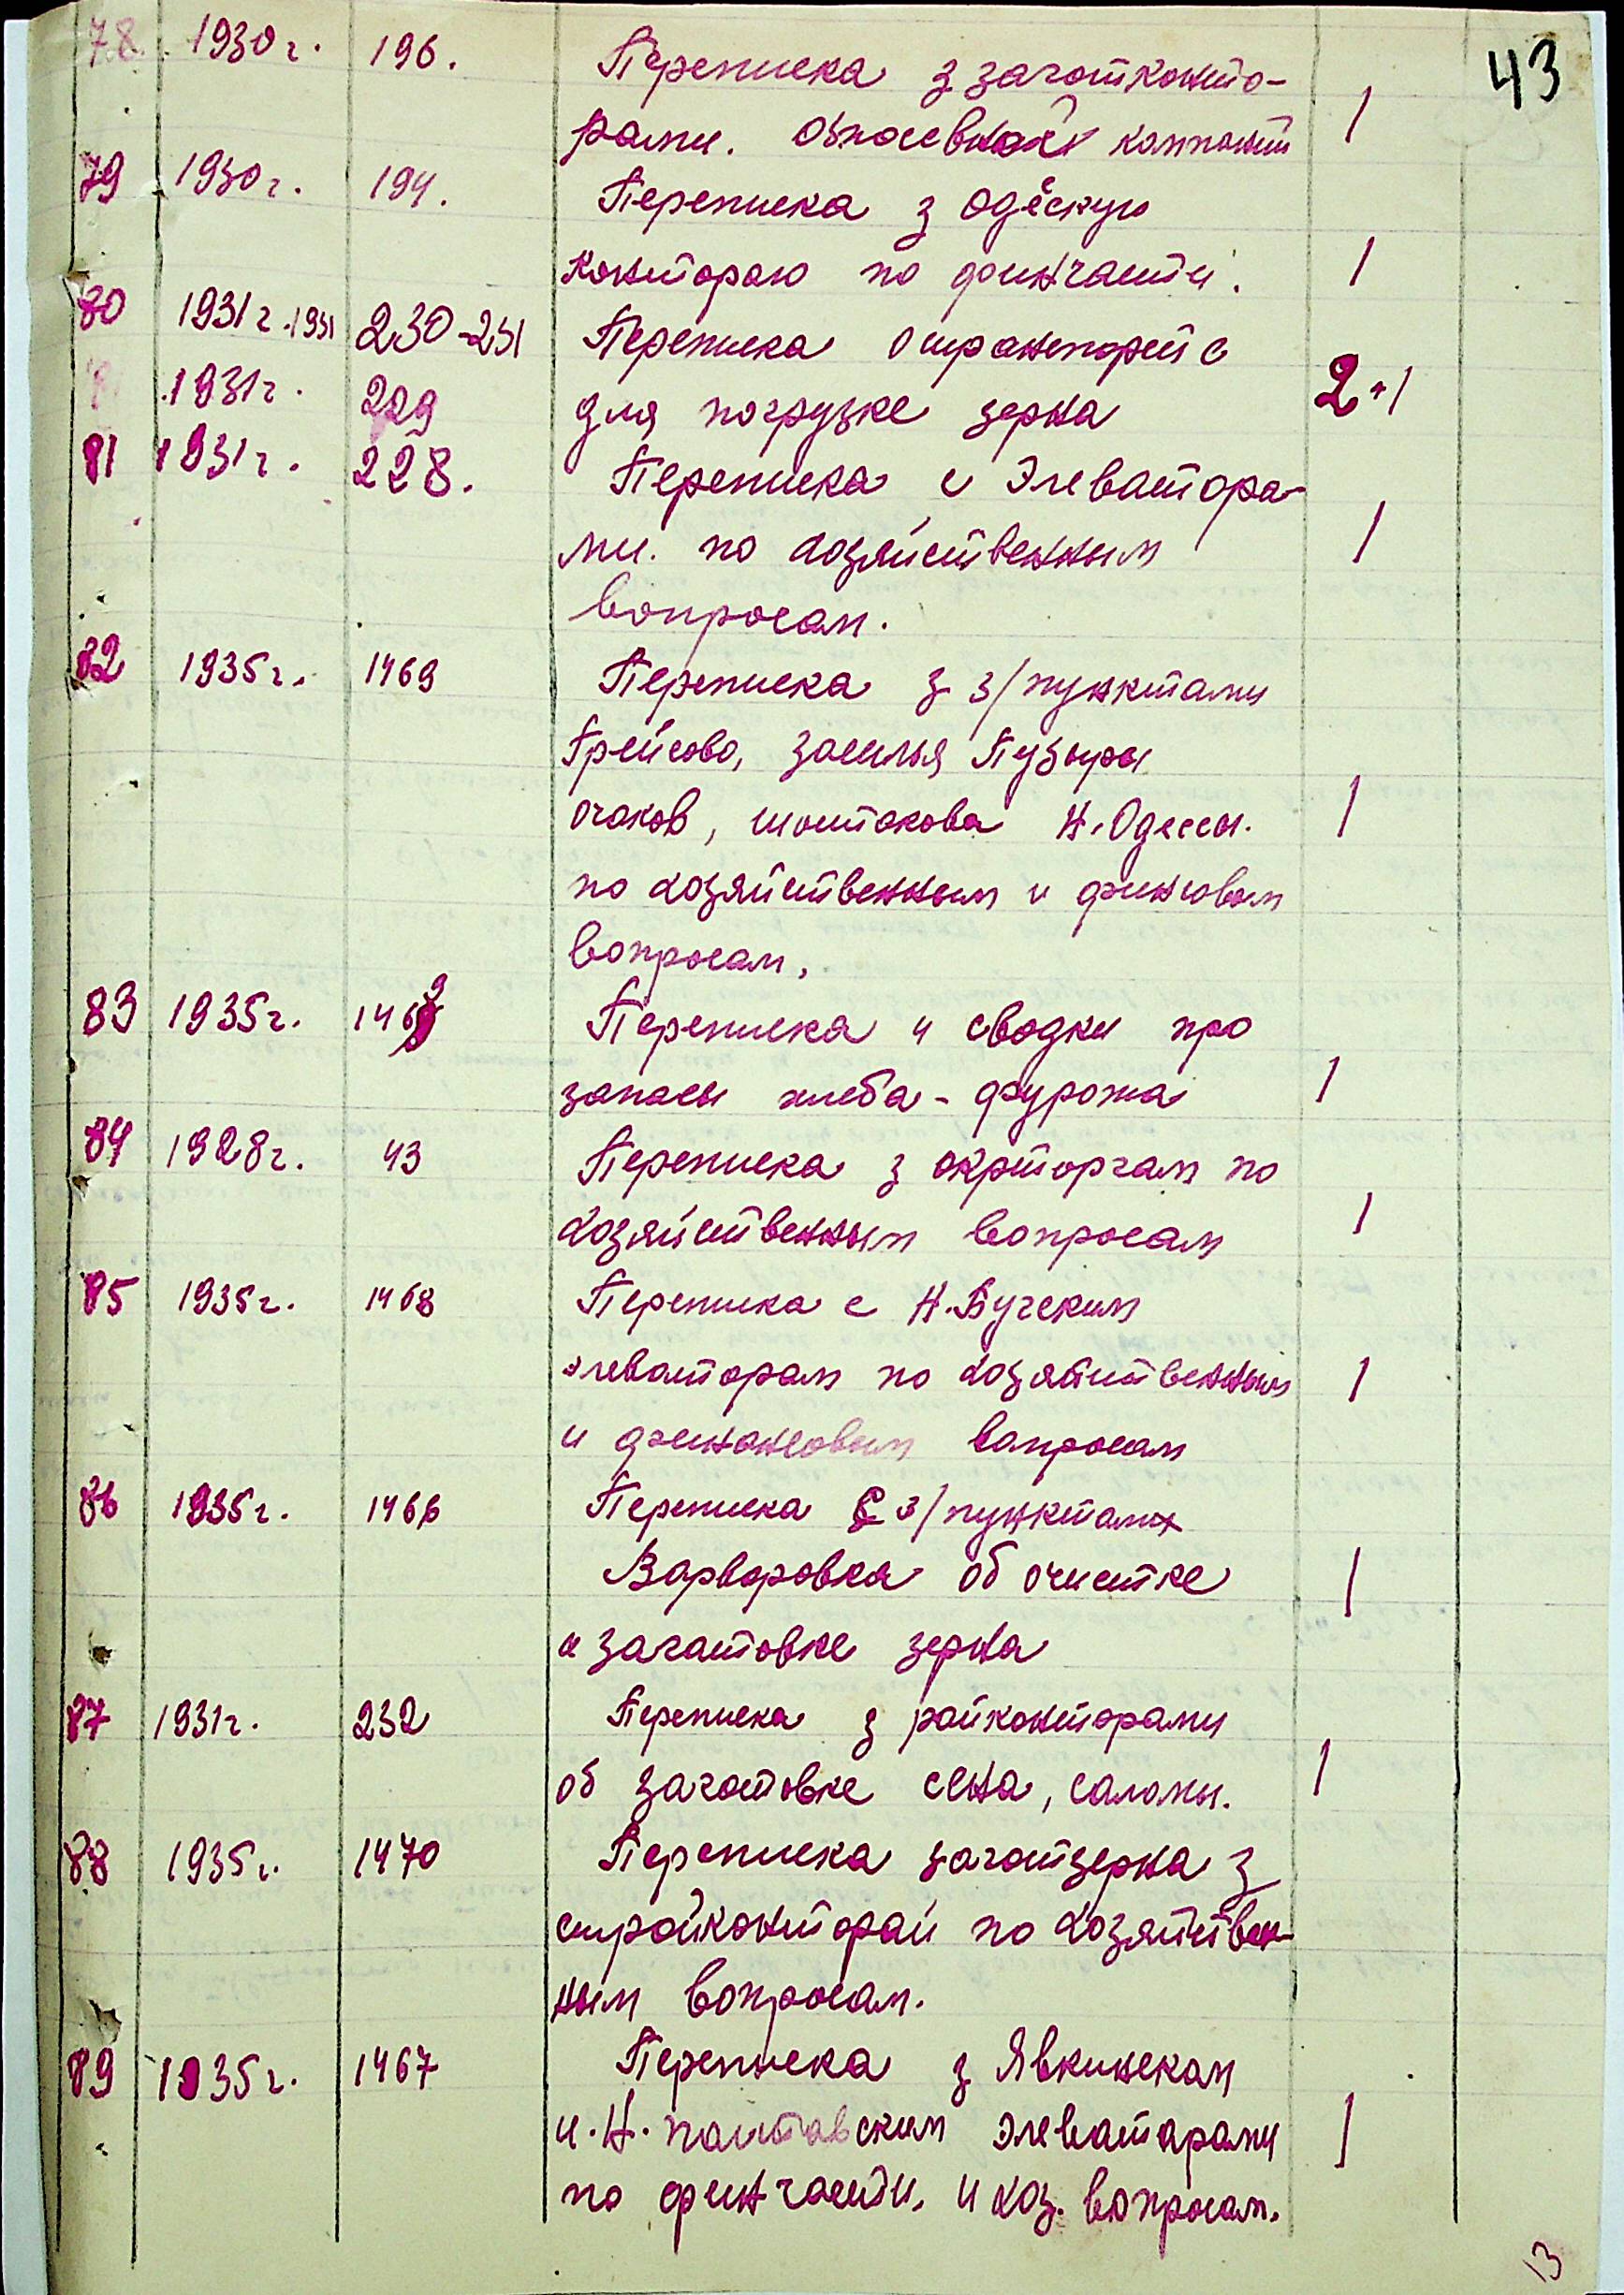 43
78. 1930 г. 196. Переписка з заготконто-
рами. О посевной кампании 1
79 1930 г. 194. Переписка з одескую
конторою по финчасти. 1
80 1931 г. 1931 230-231 Переписка о транспорте
1931 г. 229 для погрузке зерна 2+1
81 1931 г. 228. Переписка с Элеватора-
ми. по хозяйственным 1
вопросам.
82 1935 г. 1469 Переписка з з/пунктами
Грейгово, Заселья Пузыры
Очаков, Шостакова Н. Одессы. 1
по хозяйственным и финсовым
вопросам.
83 1935 г. 1469 Переписка и сводки про
запасы хлеба - фуража 1
84 1928 г. 43 Переписка з окрторгам по
хозяйственным вопросам 1
85 1935 г. 1468 Переписка с Н. Бугским
элеваторам по хозяйственным 1
и финансовым вапросам
86 1935 г. 1466 Переписка с з/пунктами
Варваровка об очистке 1
и загатовке зерна
87 1931 г. 232 Переписка з райконторами
об заготовке сена, саломы. 1
88 1935 г. 1470 Переписка заготзерна з
стройконторай по хозяйствен-
ным вопросам.
89 1935 г. 1467 Переписка з Явкинскам
и. Н. полтавским элеватарами 1
по финчасти. и хоз. вопросам.
13